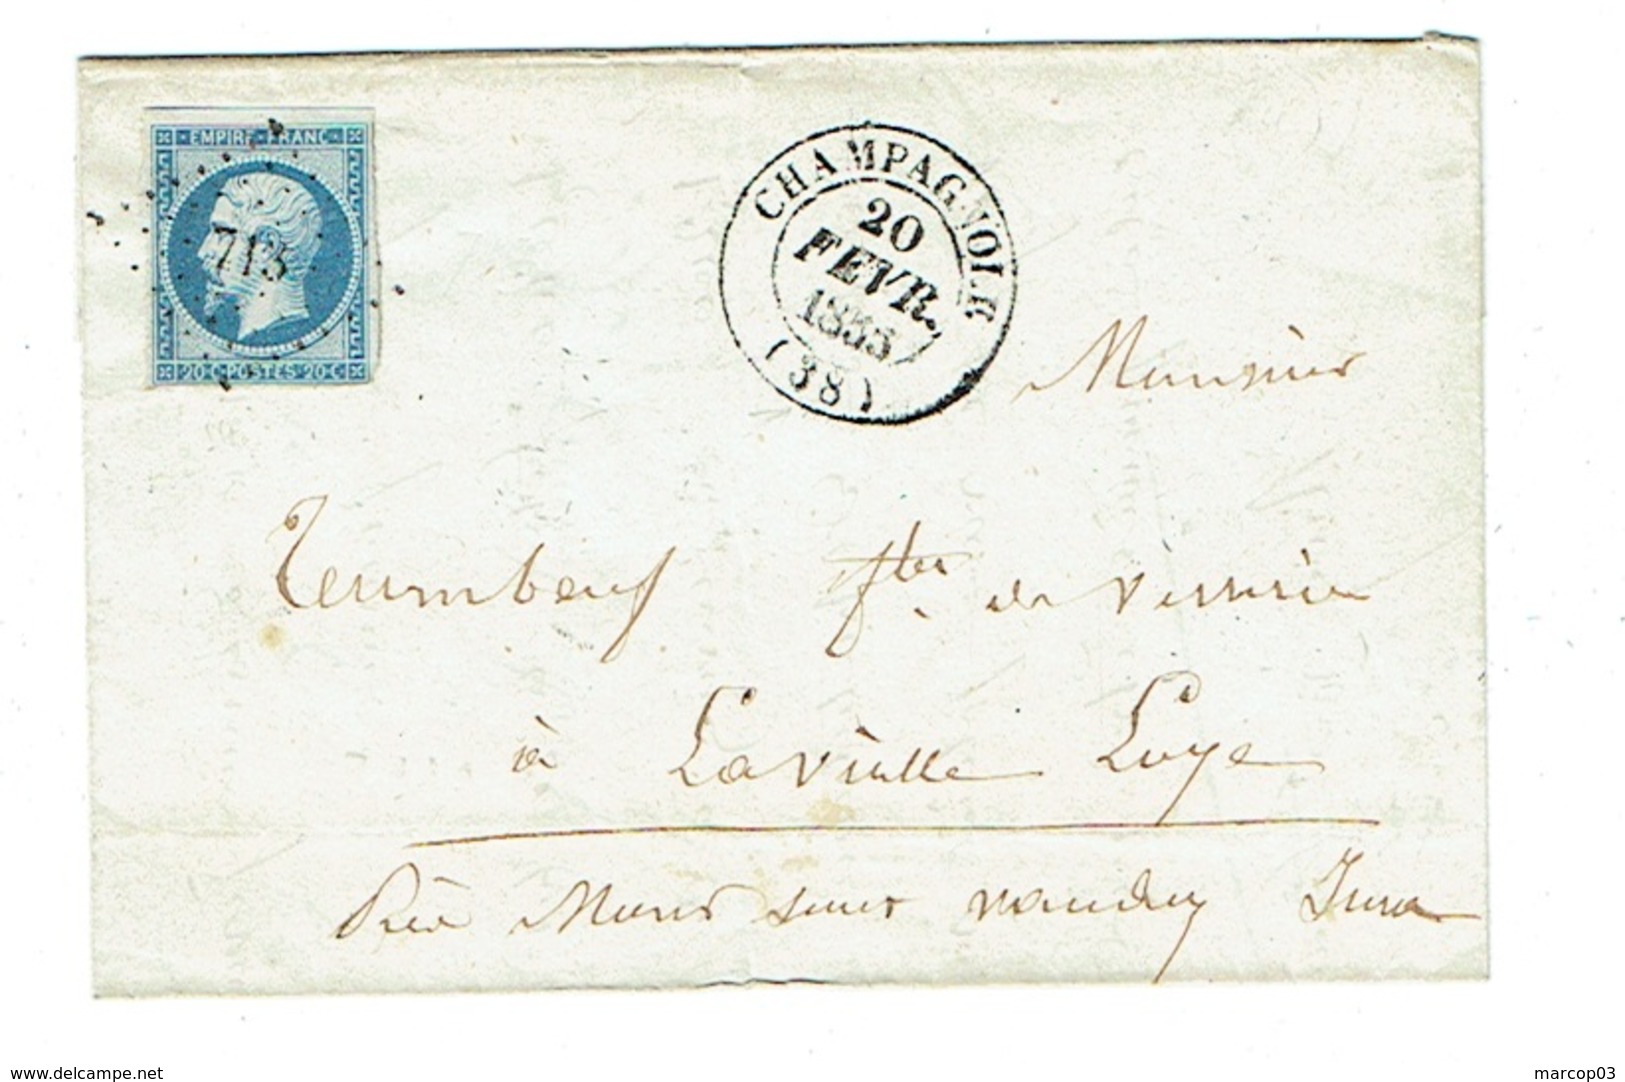 EMPIRE FRANC
713
20 C POSTES 20 C
CHAMPAGNOLE
20
FEVR.
1855
(38)
Monsieur
Teurnbeuf fter de verrerie
à La Vieille Loye
Près Mont sous vaudrey Jura
www.delcampe.net
marcop03